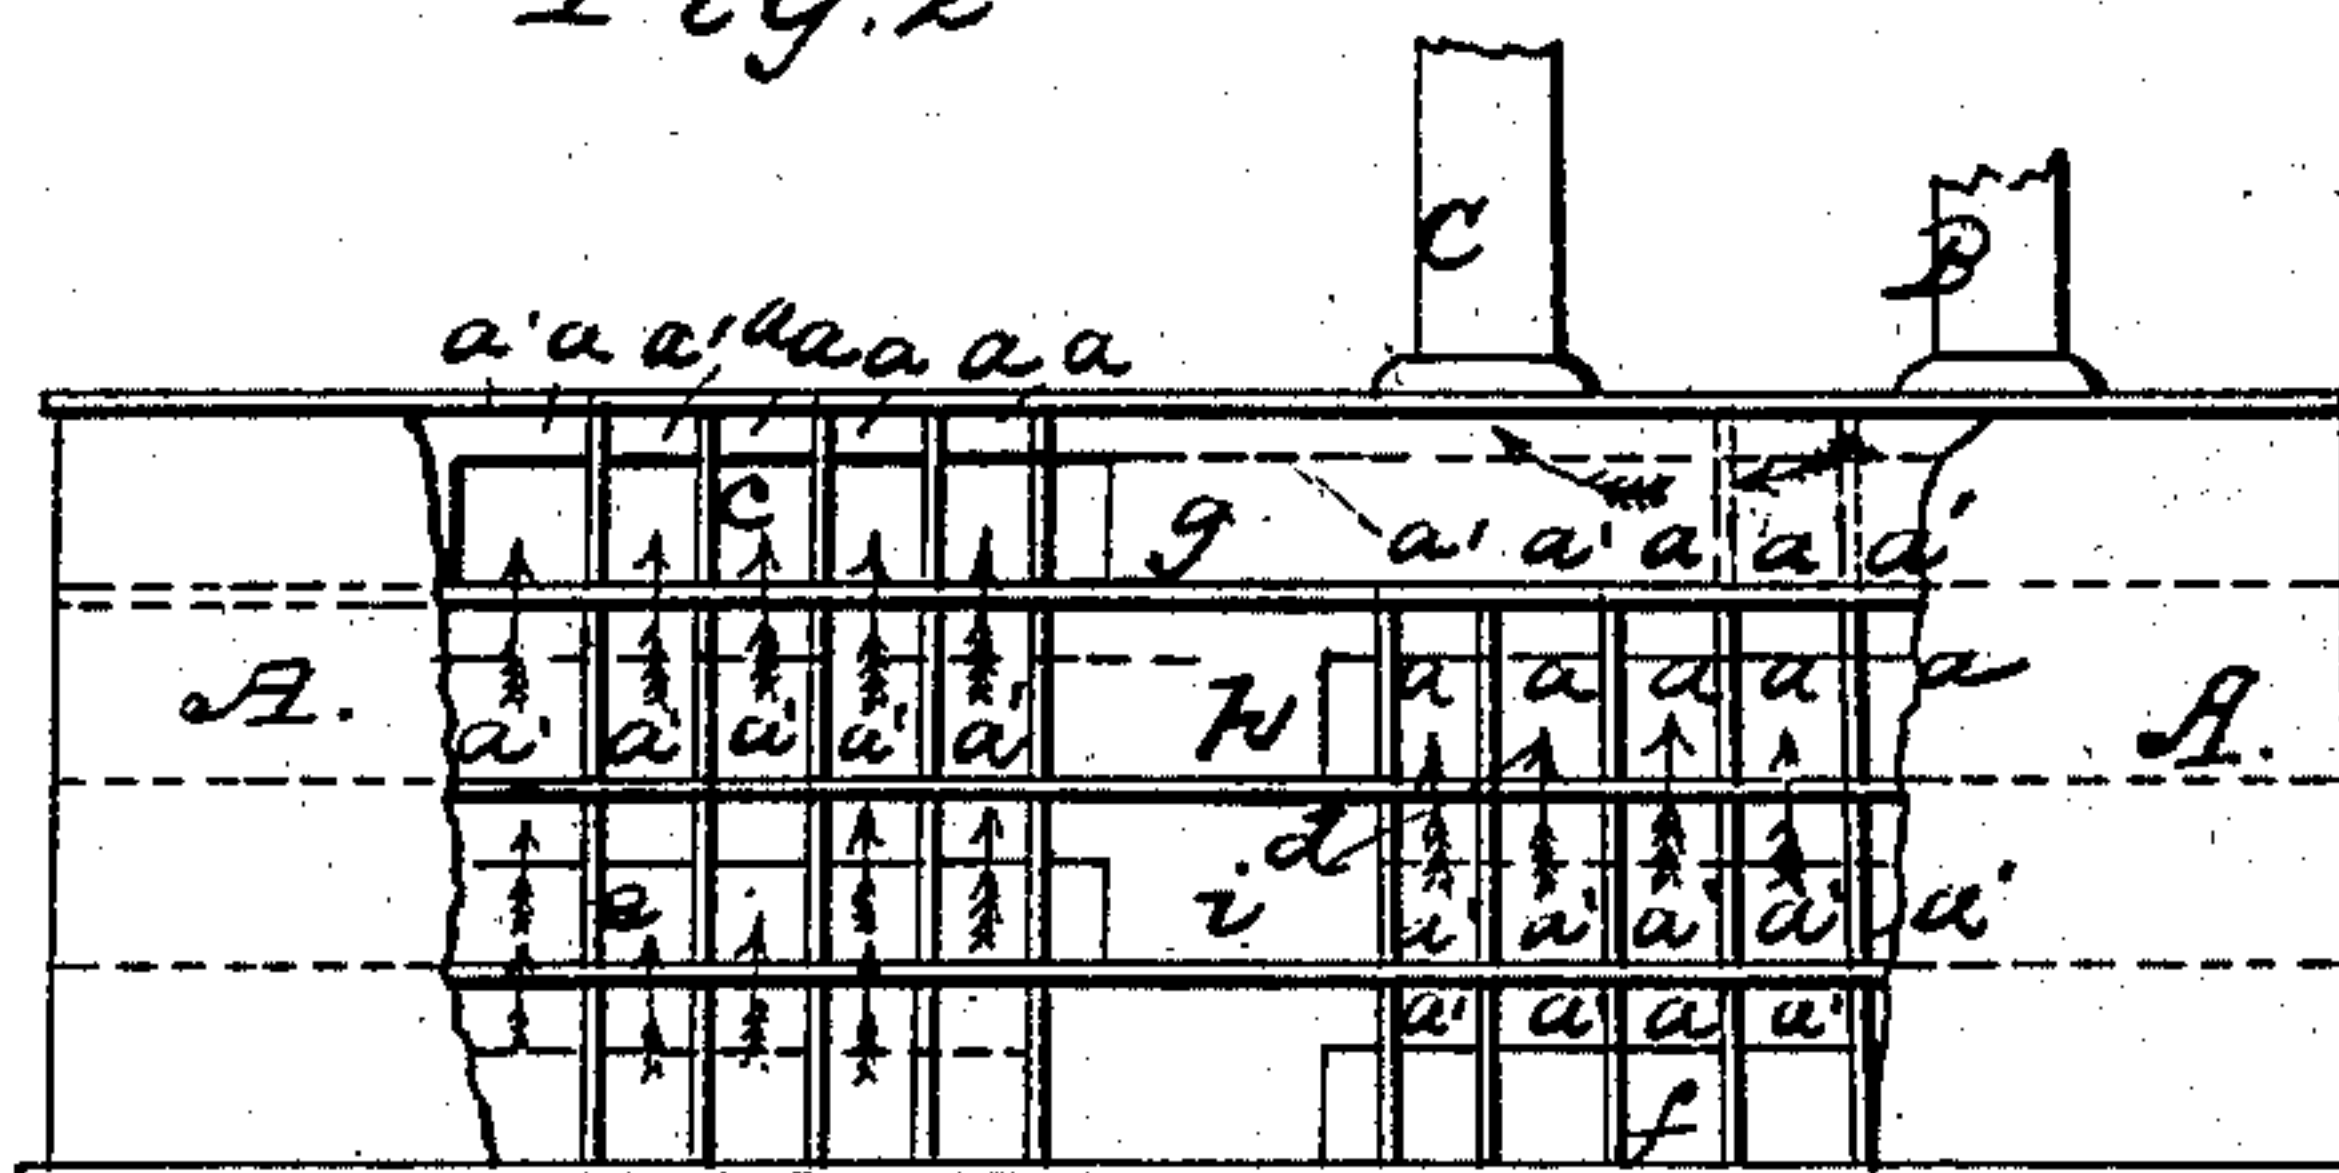 Fig. 2
C
B
a' a a' a a a a a
c
g
a' a' a a a'
A.
a' a' a' a' a'
h
a a a a a
A.
d
e
i
a' a' a' a' a'
a' a' a' a'
f